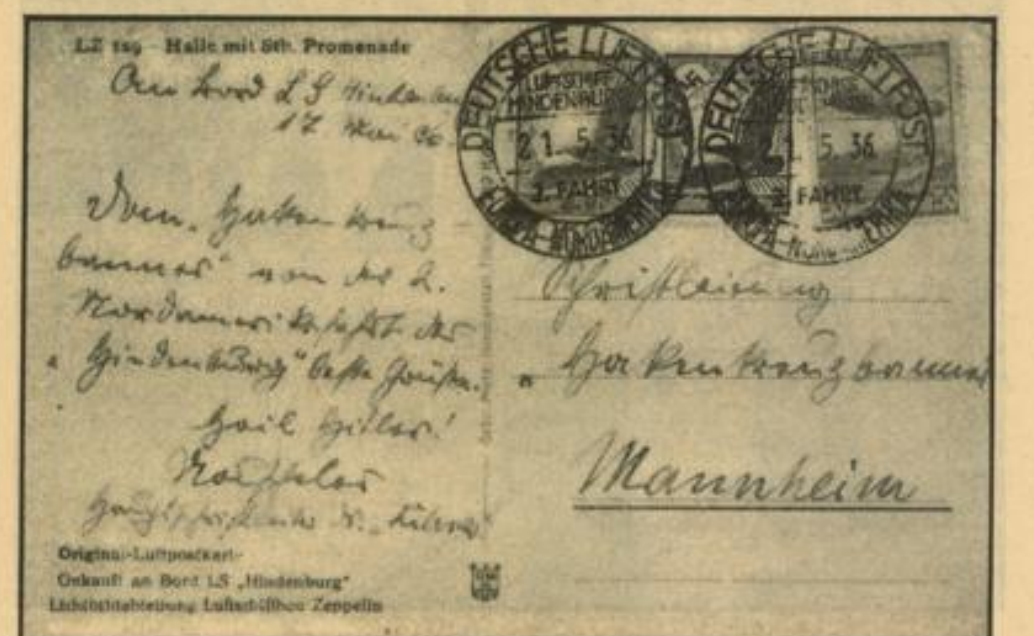 LZ 129 - Halle mit Stb. Promenade
An Bord LS Hindenburg
17 Mai 36.
Dem „Hakenkreuz
banner" von der 2.
Nordamerikafahrt der
„Hindenburg" beste Grüße.
Heil Hitler!
Original-Luftpostkarte
Gekauft an Bord LS „Hindenburg"
Lichtbildabteilung Luftschiffbau Zeppelin
DEUTSCHE LUFTPOST
LUFTSCHIFF
HINDENBURG
21.5.36
2. FAHRT
EUROPA-NORDAMERIKA
DEUTSCHE LUFTPOST
5.36
2. FAHRT
EUROPA-NORDAMERIKA
Schriftleitung
„Hakenkreuzbanner
Mannheim